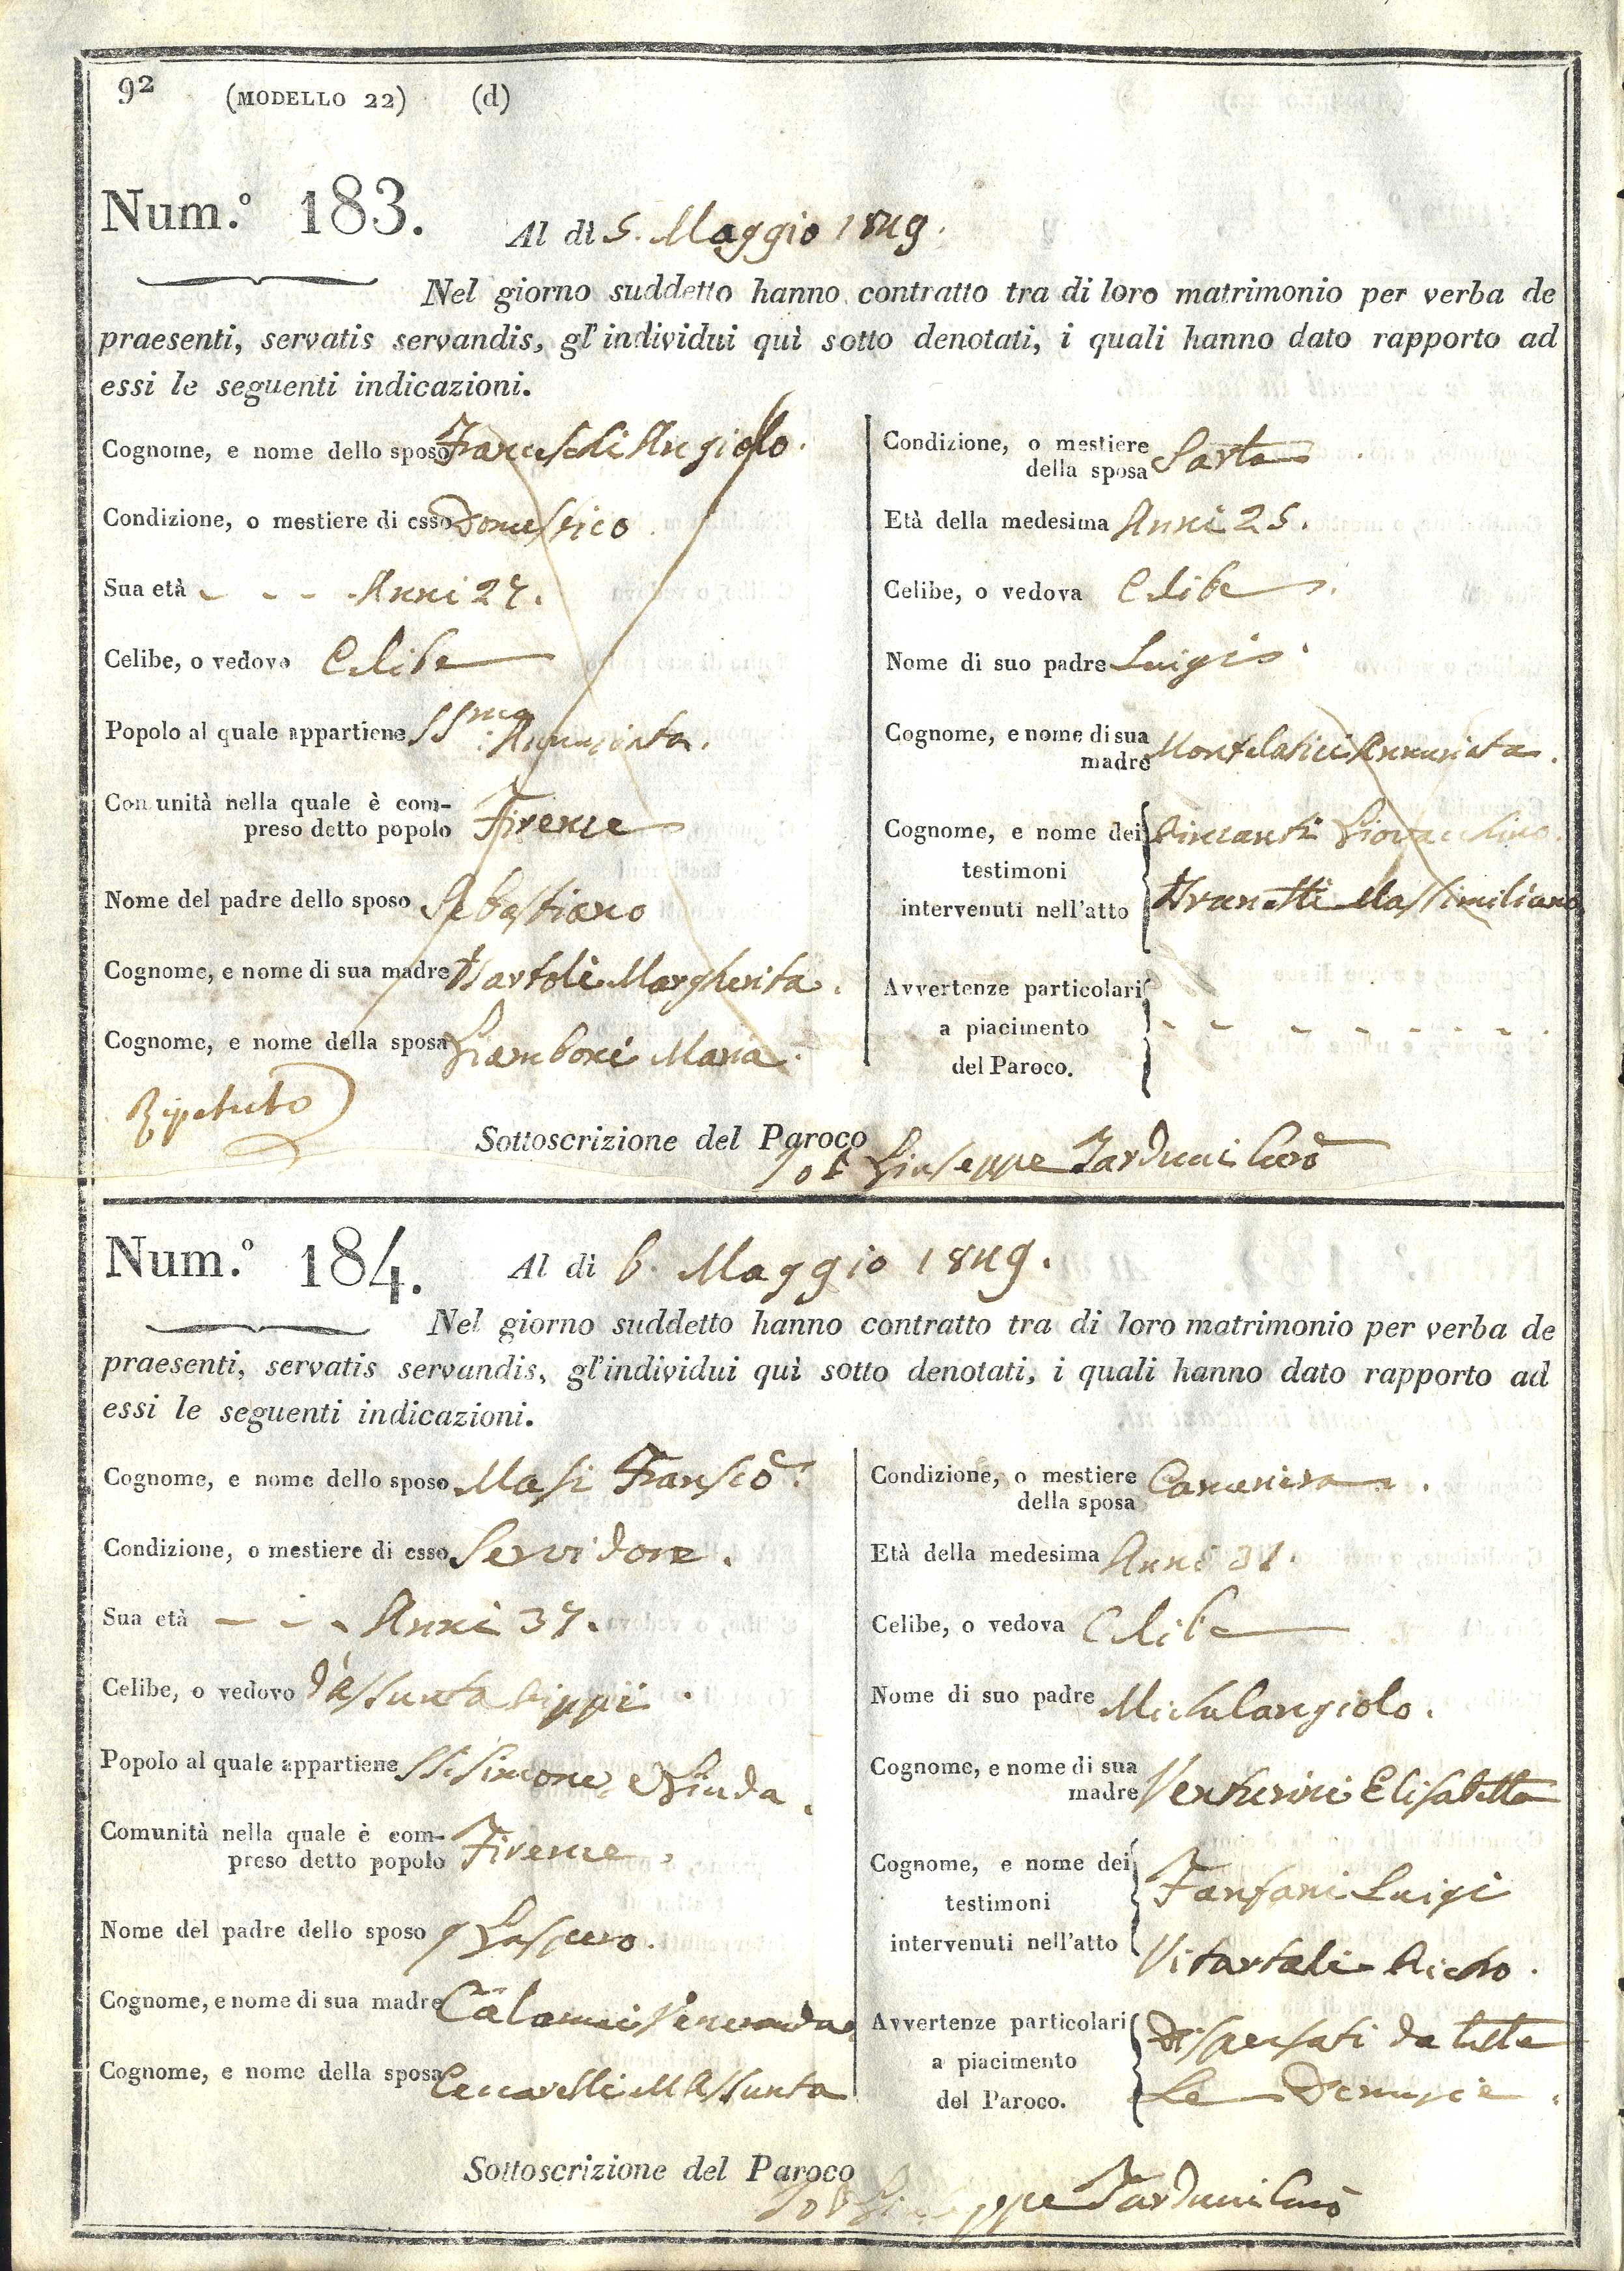 92 (MODELLO 22) (d)
Num.º 183. Al dì 5. Maggio 1849.
Nel giorno suddetto hanno contratto tra di loro matrimonio per verba de
praesenti, servatis servandis, gl'individui quì sotto denotati, i quali hanno dato rapporto ad
essi le seguenti indicazioni.
Cognome, e nome dello sposo Franceschi Angiolo.
Condizione, o mestiere di esso Domestico
Sua età - - - Anni 27.
Celibe, o vedovo Celibe
Popolo al quale appartiene SSma: Annunziata.
Comunità nella quale è com-
preso detto popolo Firenze
Nome del padre dello sposo Sebastiano
Cognome, e nome di sua madre Bartoli Margherita.
Cognome, e nome della sposa Giamboni Maria.
Ripetuto
Condizione, o mestiere
della sposa Sarta
Età della medesima Anni 25.
Celibe, o vedova Celibe
Nome di suo padre Luigi
Cognome, e nome di sua
madre Montelatici Annunziata.
Cognome, e nome dei Giovacchino.
testimoni
intervenuti nell'atto Brunetti Massimiliano
Avvertenze particolari
a piacimento - - - - - - - -
del Paroco.
Sottoscrizione del Paroco
Giuseppe Tarducci Curo
Num.º 184. Al dì 6. Maggio 1849.
Nel giorno suddetto hanno contratto tra di loro matrimonio per verba de
praesenti, servatis servandis, gl'individui quì sotto denotati, i quali hanno dato rapporto ad
essi le seguenti indicazioni.
Cognome, e nome dello sposo Masi Fransco.
Condizione, o mestiere di esso Servidore.
Sua età - - - Anni 37.
Celibe, o vedovo d'Assunta Lippi.
Popolo al quale appartiene SS. Simone, e Giuda.
Comunità nella quale è com-
preso detto popolo Firenze.
Nome del padre dello sposo Gaspero.
Cognome, e nome di sua madre Veneranda
Cognome, e nome della sposa Ceccarelli M Assunta
Condizione, o mestiere
della sposa Cameriera.
Età della medesima Anni 31.
Celibe, o vedova Celibe
Nome di suo padre Michelangiolo.
Cognome, e nome di sua
madre Elisabetta
Cognome, e nome dei
testimoni Fanfani Luigi
intervenuti nell'atto
Avvertenze particolari Dispensati da tutte
a piacimento
del Paroco. Le Denunzie.
Sottoscrizione del Paroco
Giuseppe Tarducci Curo